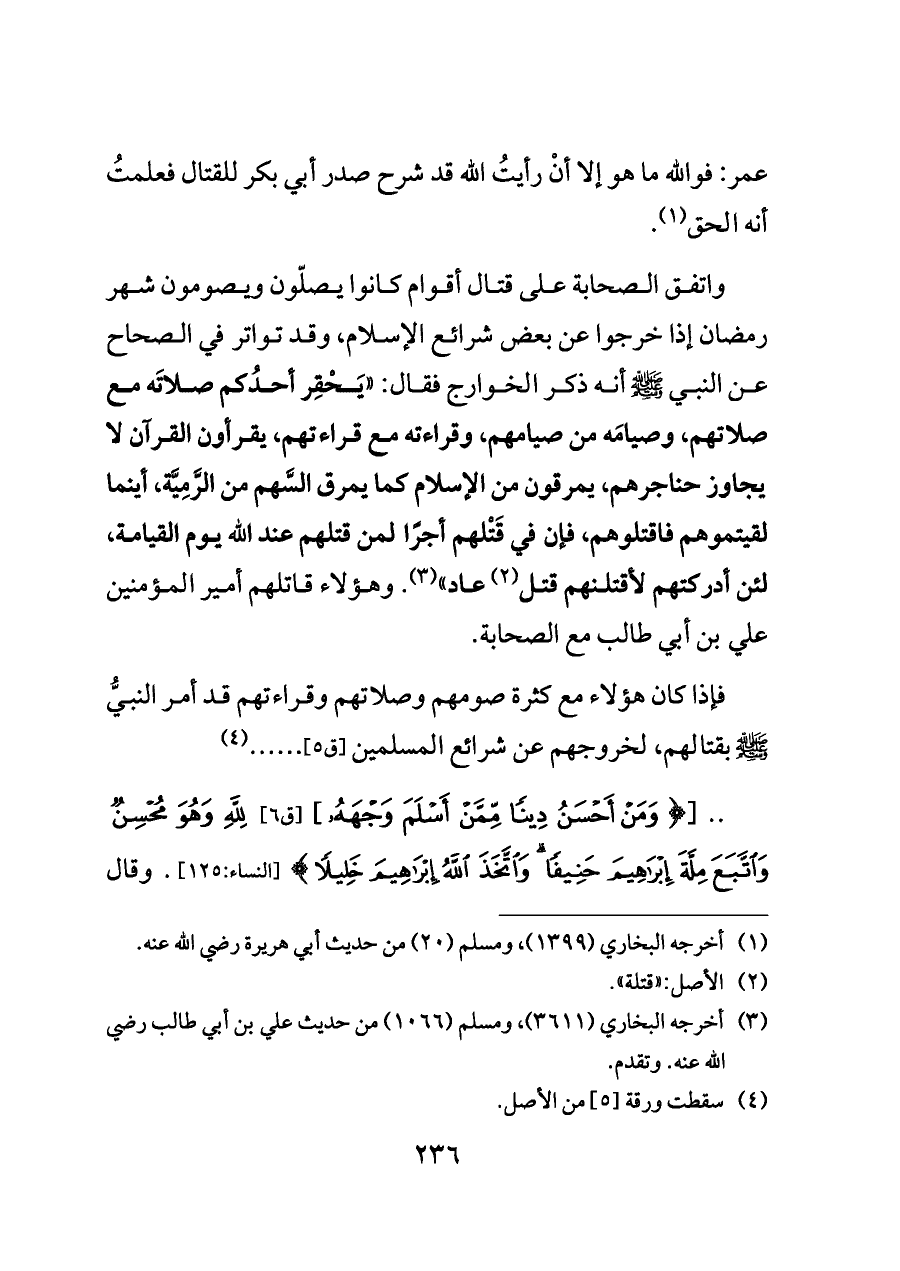 عمر: فوالله ما هو إلا أنْ رأيتُ الله قد شرح صدر أبي بكر للقتال فعلمتُ
أنه الحق(١).
واتفق الصحابة على قتال أقوام كانوا يصلّون ويصومون شهر
رمضان إذا خرجوا عن بعض شرائع الإسلام، وقد تواتر في الصحاح
عن النبي ﷺ أنه ذكر الخوارج فقال: «يَحْقِر أحدُكم صلاتَه مع
صلاتهم، وصيامَه من صيامهم، وقراءته مع قراءتهم، يقرأون القرآن لا
يجاوز حناجرهم، يمرقون من الإسلام كما يمرق السَّهم من الرَّمِيَّة، أينما
لقيتموهم فاقتلوهم، فإن في قَتْلهم أجرًا لمن قتلهم عند الله يوم القيامة،
لئن أدركتهم لأقتلنهم قتل(٢) عاد»(٣). وهؤلاء قاتلهم أمير المؤمنين
علي بن أبي طالب مع الصحابة.
فإذا كان هؤلاء مع كثرة صومهم وصلاتهم وقراءتهم قد أمر النبيُّ
ﷺ بقتالهم، لخروجهم عن شرائع المسلمين [ق٥]......(٤)
.. [﴿ وَمَنْ أَحْسَنُ دِينًا مِّمَّنْ أَسْلَمَ وَجْهَهُۥ ] [ق٦] لِلَّهِ وَهُوَ مُحْسِنٌ
وَٱتَّبَعَ مِلَّةَ إِبْرَٰهِيمَ حَنِيفًا ۗ وَٱتَّخَذَ ٱللَّهُ إِبْرَٰهِيمَ خَلِيلًا ﴾ [النساء:١٢٥]. وقال
(١) أخرجه البخاري (١٣٩٩)، ومسلم (٢٠) من حديث أبي هريرة رضي الله عنه.
(٢) الأصل:«قتلة».
(٣) أخرجه البخاري (٣٦١١)، ومسلم (١٠٦٦) من حديث علي بن أبي طالب رضي
الله عنه. وتقدم.
(٤) سقطت ورقة [٥] من الأصل.
٢٣٦